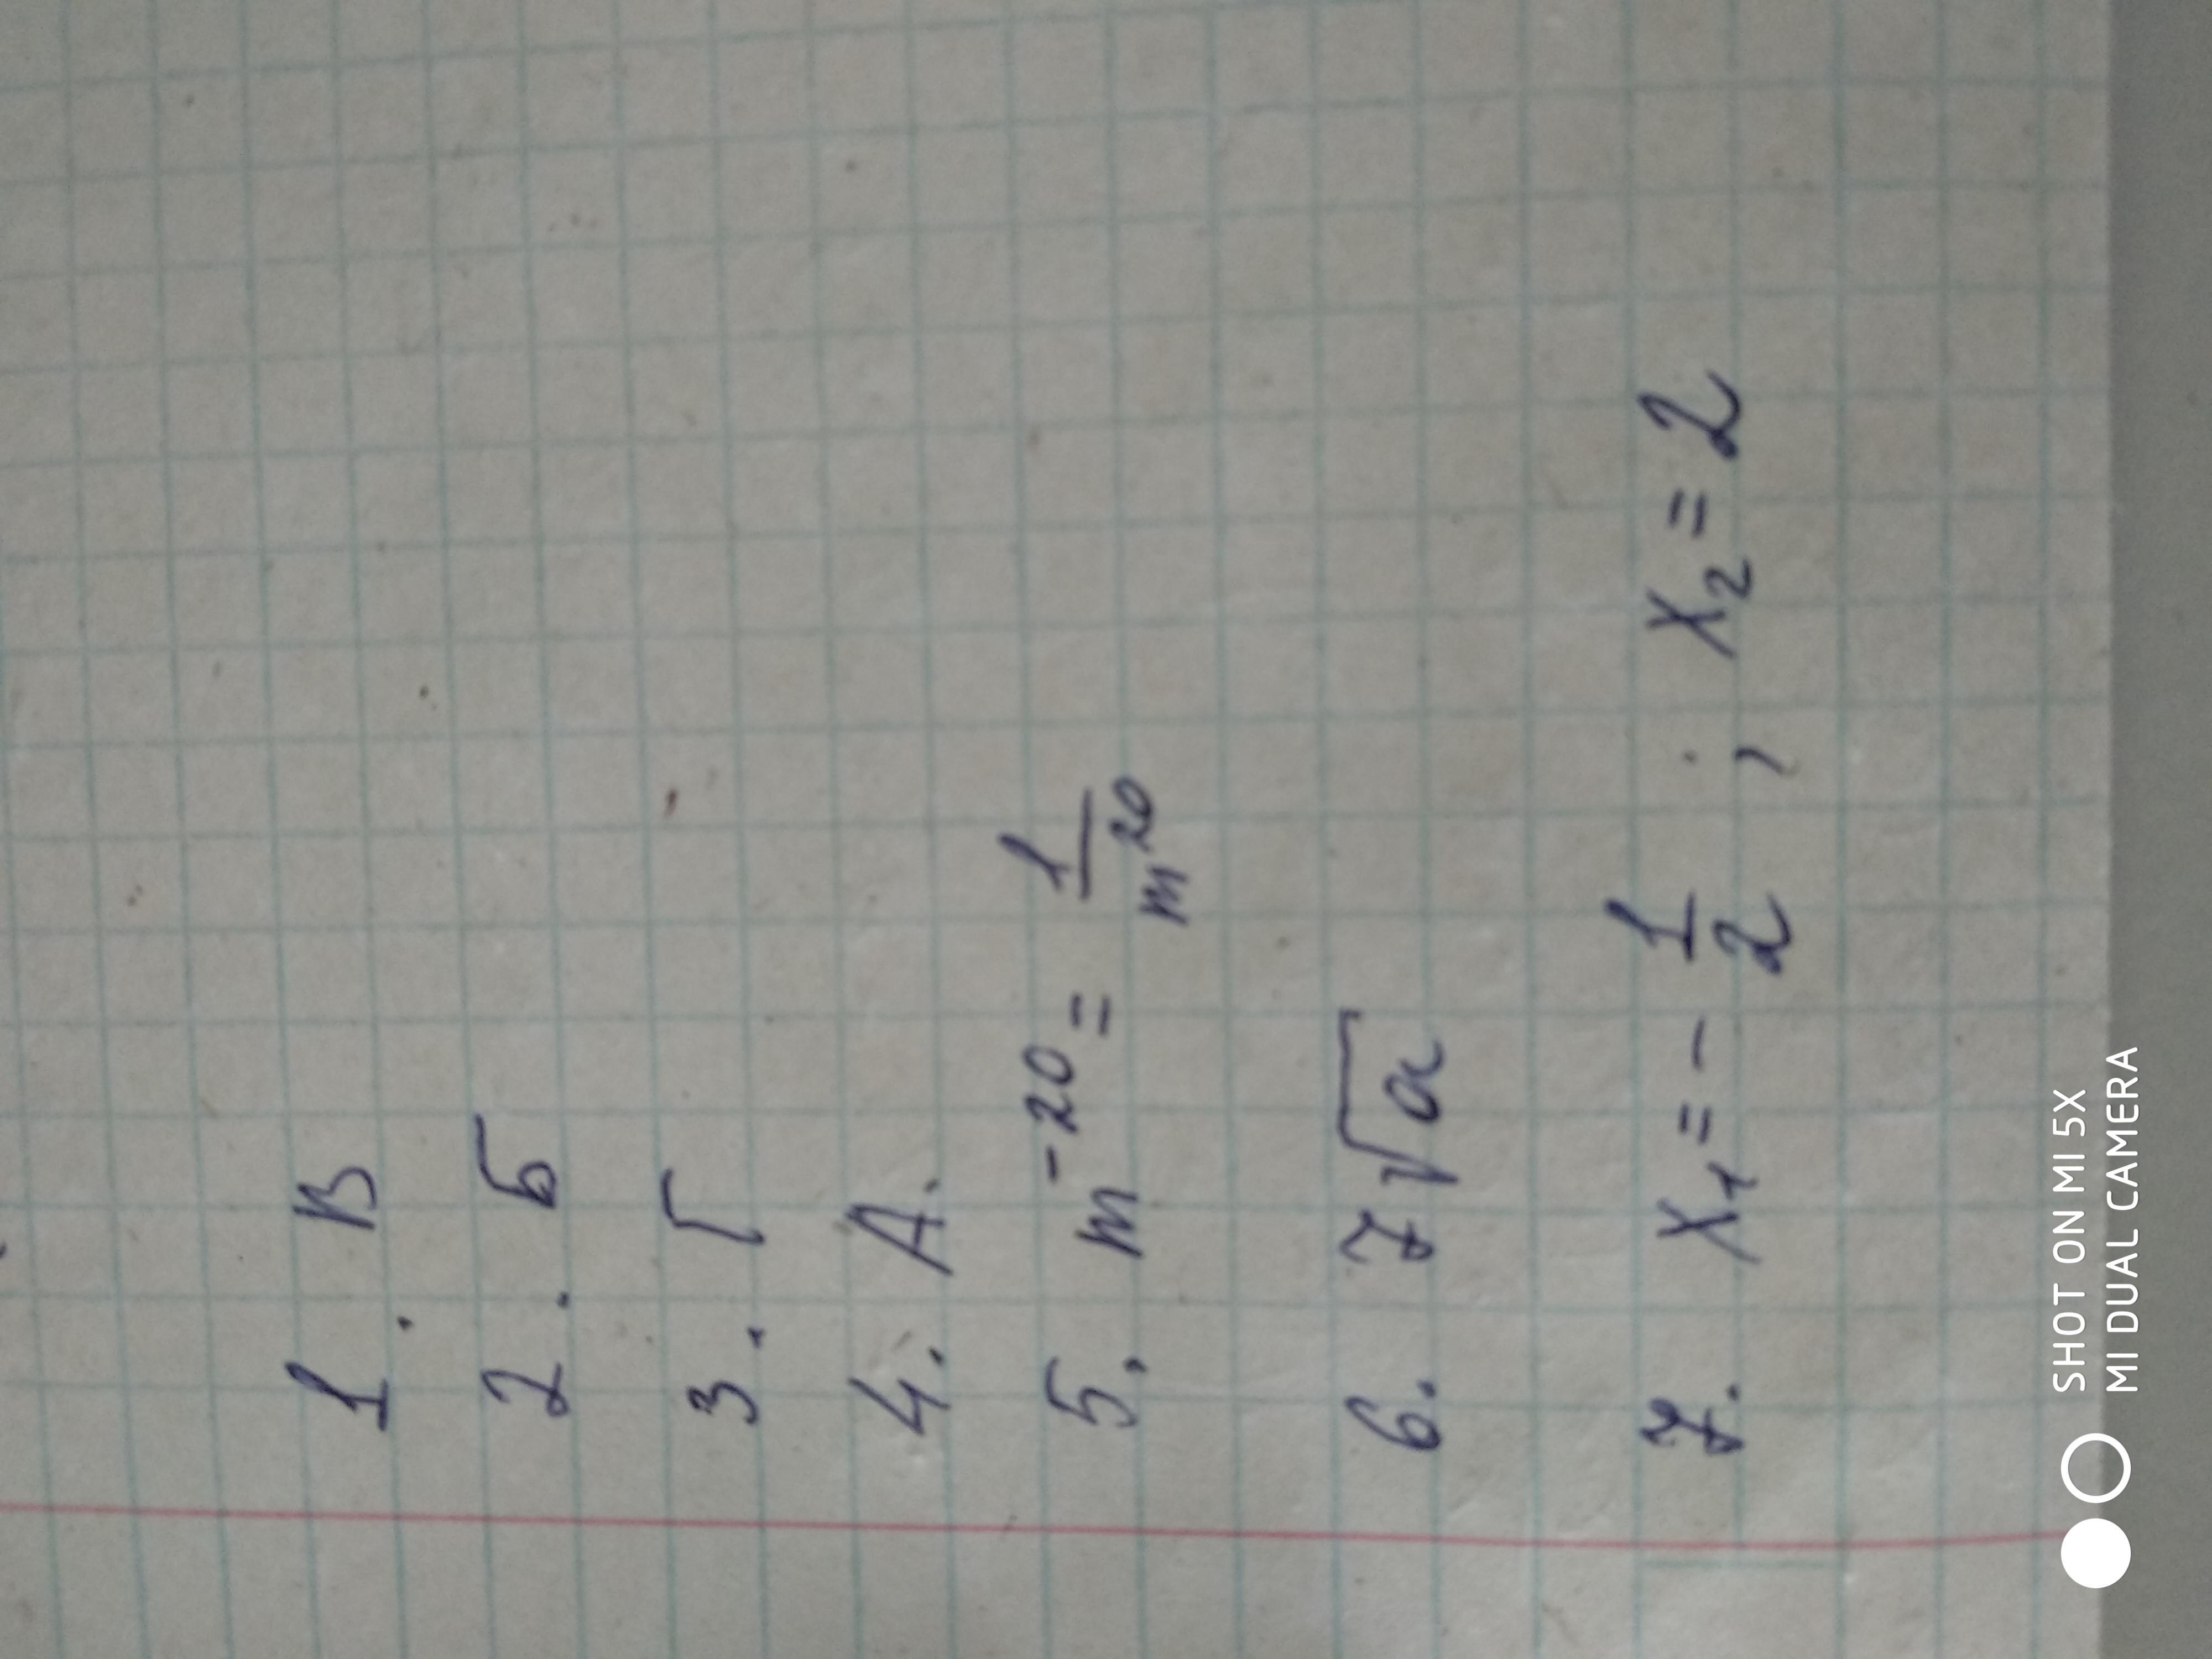 1. В
2. Б
3. Г
4. А.
5. m⁻²⁰ = 1/m²⁰
6. 7√a
7. x₁ = - 1/2 ; x₂ = 2
SHOT ON MI 5X
MI DUAL CAMERA